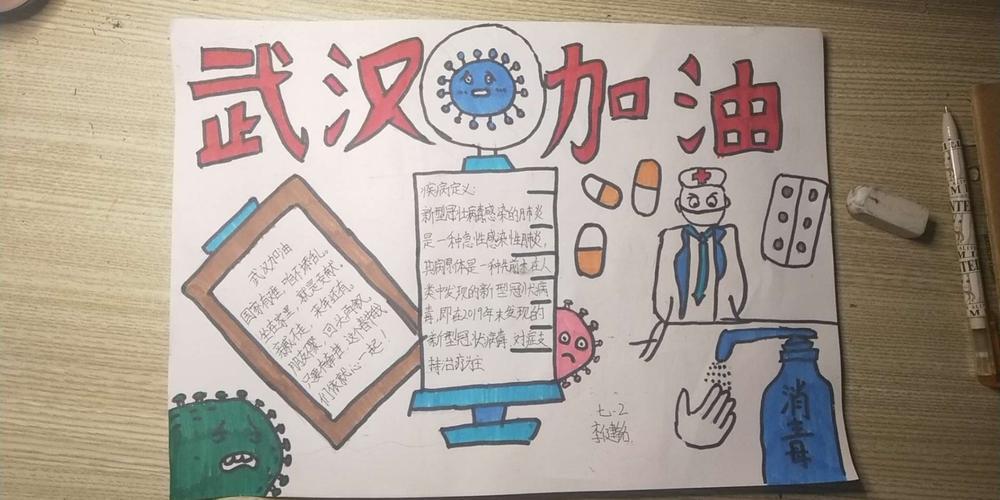 武汉加油
武汉加油
国家有难，咱不添乱。
坐在家里，就是贡献。
亲戚不走，来年还有。
朋友不聚，回头再叙。
只要有希望，这个春节我
们依然心一起！
疾病定义：
新型冠状病毒感染的肺炎
是一种急性感染性肺炎，
其病原体是一种先前未在人
类中发现的新型冠状病
毒，即在2019年末发现的
新型冠状病毒，对症支
持治疗为主
七.2
消毒